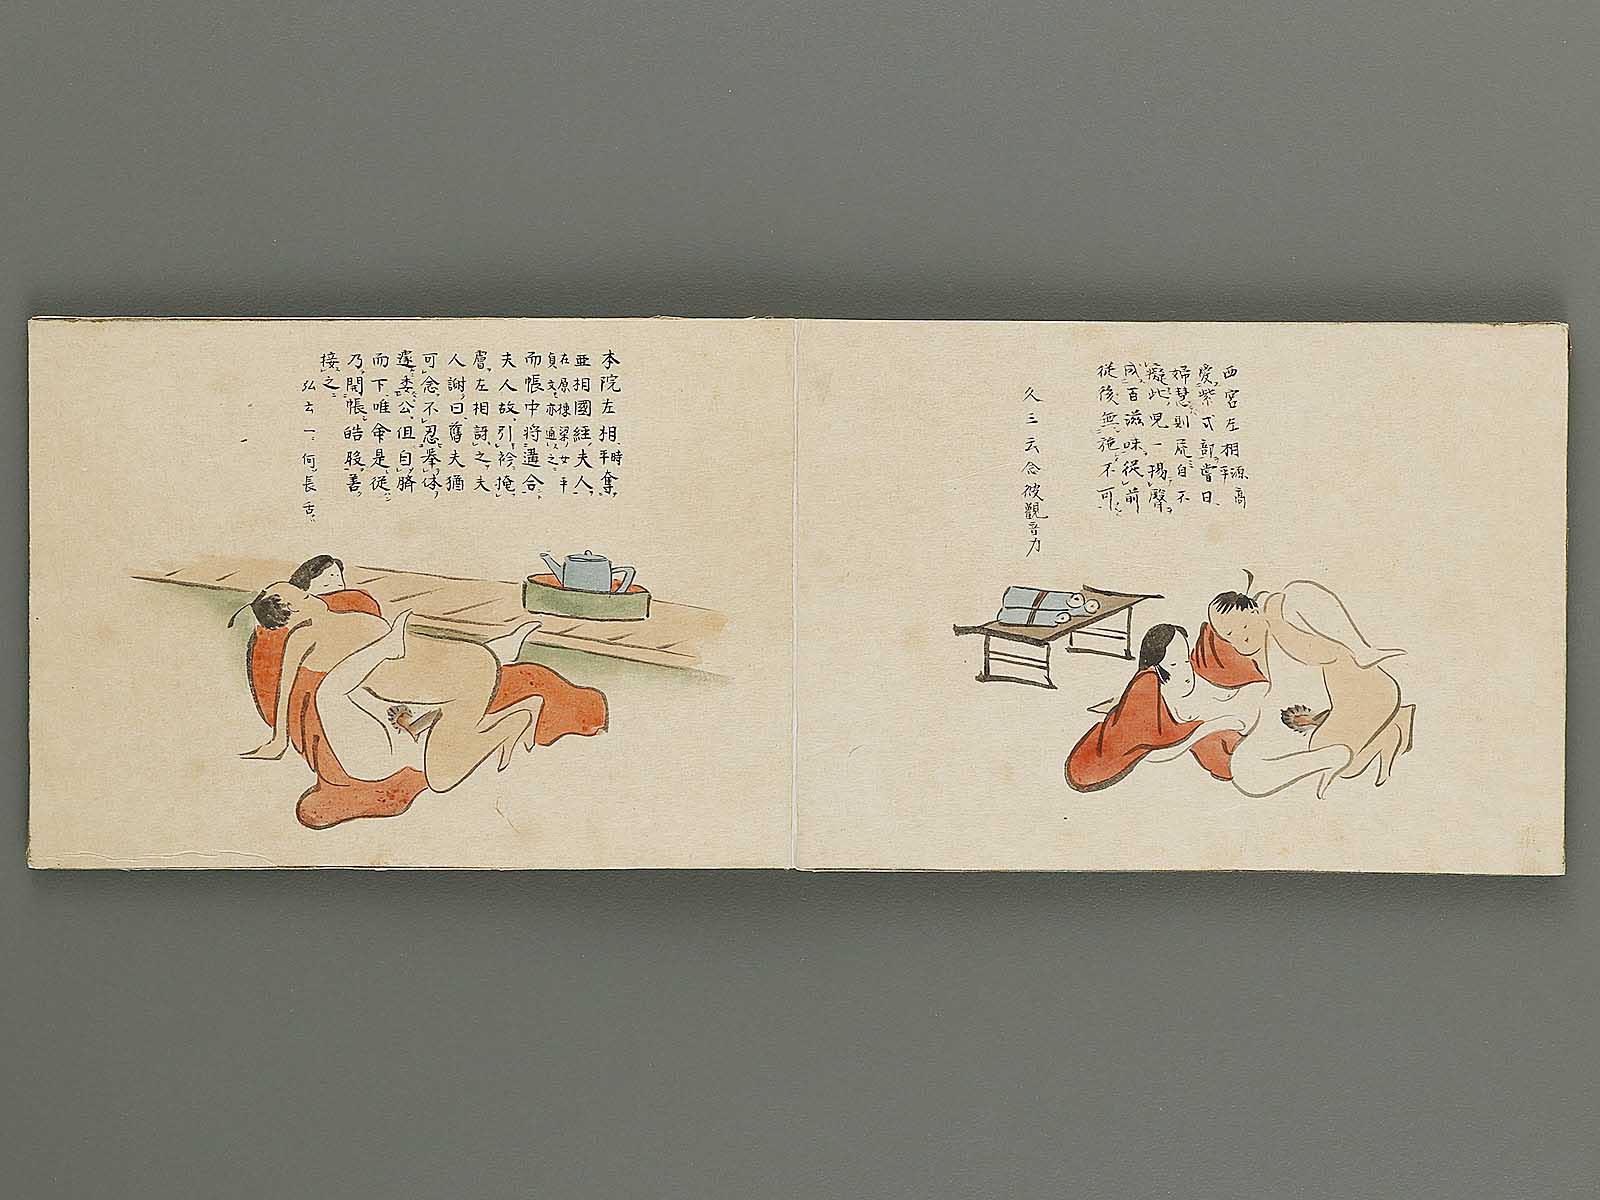 西宮左相源高平
愛紫式部嘗曰
婦慧則荒自不
癡此兒一揚臀
成百滋味從前
從後無施不可
久三云念彼觀音力
本院左相時平奪
亞相國經夫人
在原棟梁女平
貞文亦通之
而帳中將溝合
夫人故引衿掩
膚左相訝之夫
人謝曰舊夫猶
可念不忍擧体
遽委公但自臍
而下唯命是從
乃開帳皓股善
接之
弘云一何長舌